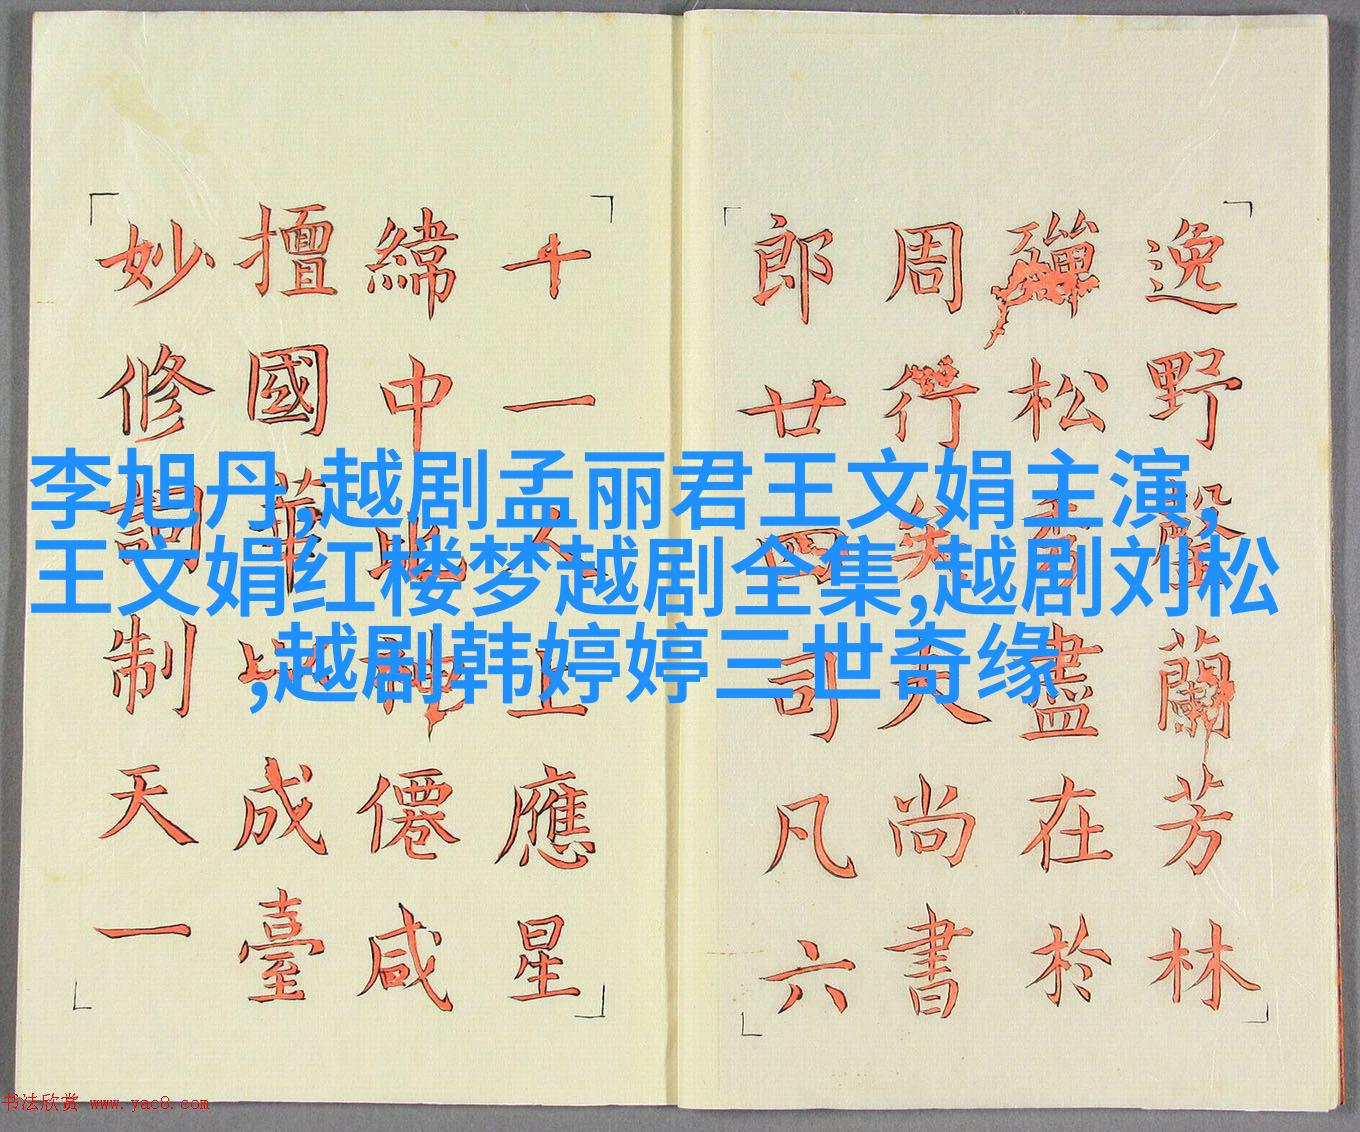 逸野蘭芳林
殫松香盡在於
周行矣夫尚書
郎廿四司凡六
十一人上應星
緯中比神僊咸
擅國華以成臺
妙修詞制天一
李旭丹,越剧孟丽君王文娟主演,
王文娟红楼梦越剧全集,越剧刘松
,越剧韩婷婷三世奇缘
书法欣赏 www.yac8.com